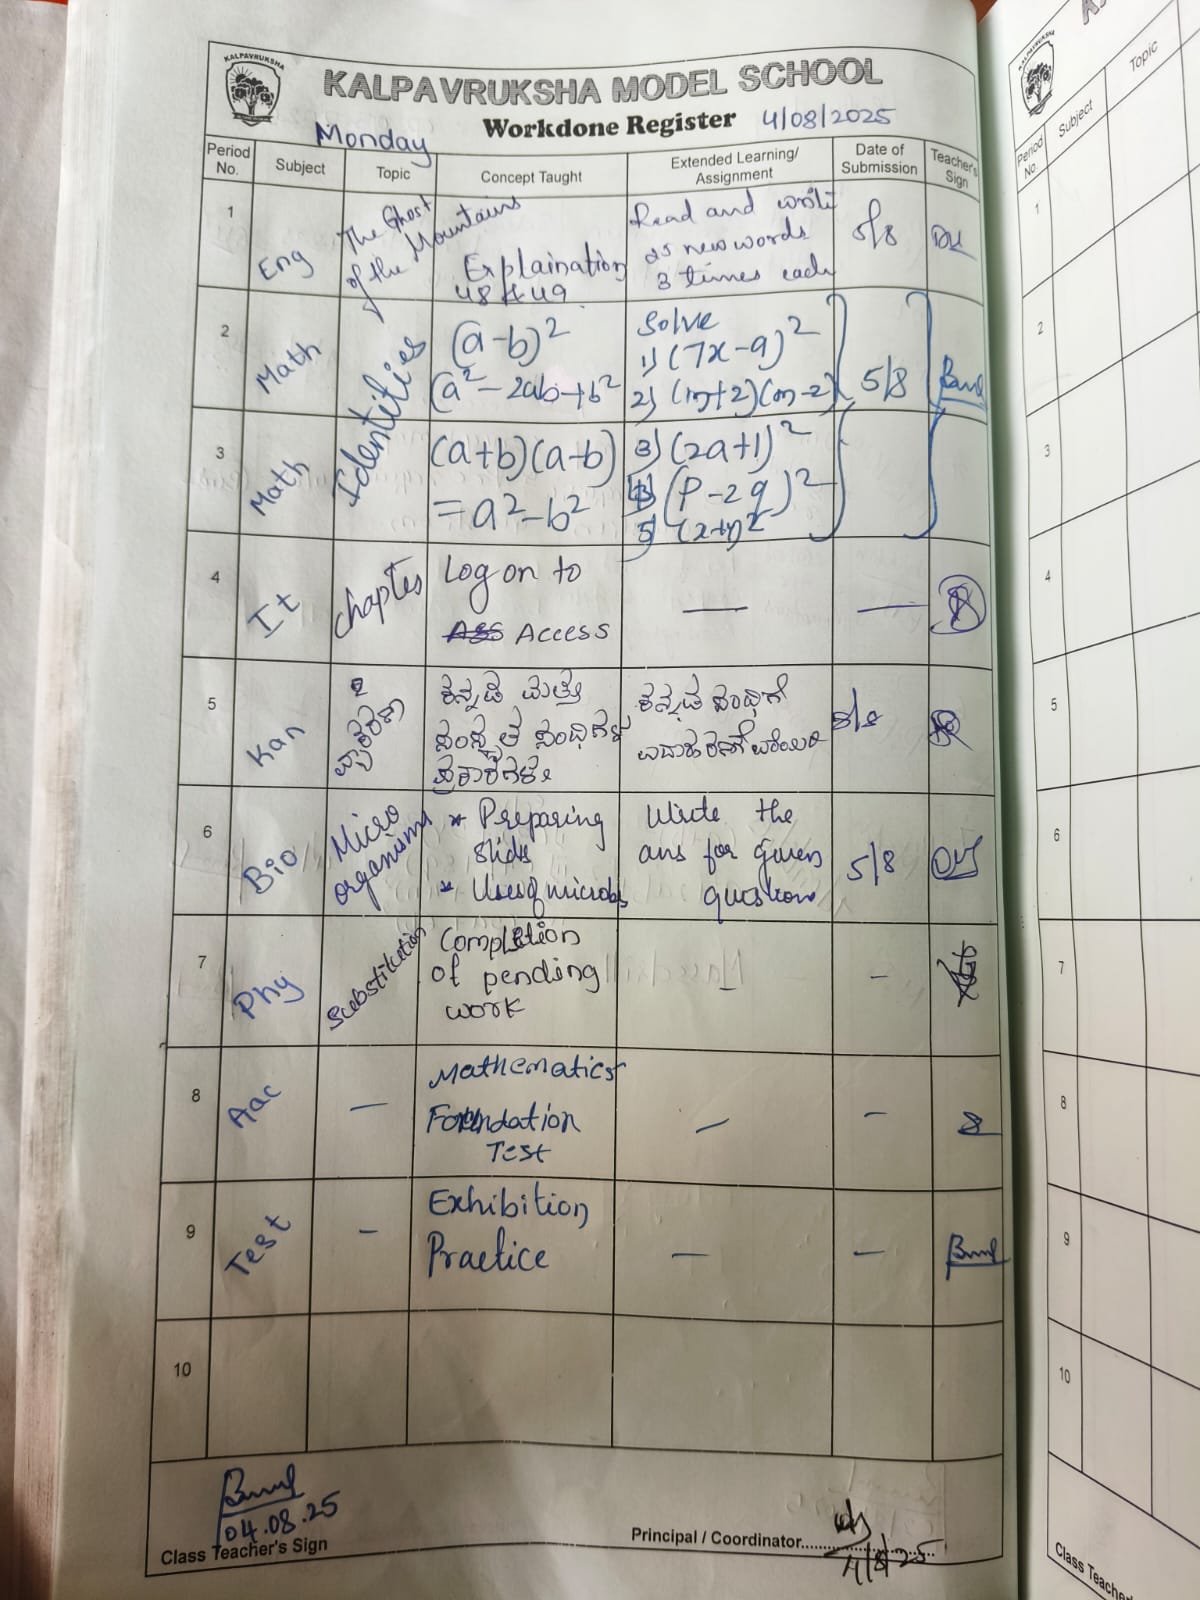 KALPAVRUKSHA
KALPAVRUKSHA MODEL SCHOOL
Monday
Workdone Register 4/08/2025
Period No.
Subject
Topic
Concept Taught
Extended Learning/ Assignment
Date of Submission
Teacher's Sign
1
Eng
The Ghost
of the Mountains
Explaination
48 & 49
Read and write
25 new words
3 times each
5/8
2
Math
Identities
(a-b)²
(a² - 2ab + b²
Solve
1) (7x-9)²
2) (m+2)(m-2)
5/8
3
Math
(a+b)(a-b)
= a² - b²
3) (2a+1)²
4) (p-2q)²
5)
4
It
Chapter
Log on to
Access
—
—
5
Kan
2
ವ್ಯಾಕರಣ
ಕನ್ನಡ ಮತ್ತು
ಸಂಸ್ಕೃತ ಸಂಧಿಗಳು
ಪ್ರಕಾರಗಳು
ಕನ್ನಡ ಸಂಧಿಗೆ
6
Bio
Micro
organisms
* Preparing
slides
* Uses of microbes
Write the
ans for given
questions
5/8
7
Phy
Substitution
Completion
of pending
work
-
-
8
Aac
—
Mathematics
Foundation
Test
—
—
9
Test
—
Exhibition
Practice
—
—
10
04.08.25
Class Teacher's Sign
Principal / Coordinator
4/8/25
KALPAVRUKSHA
Period No.
Subject
Topic
1
2
3
4
5
6
7
8
9
10
Class Teache